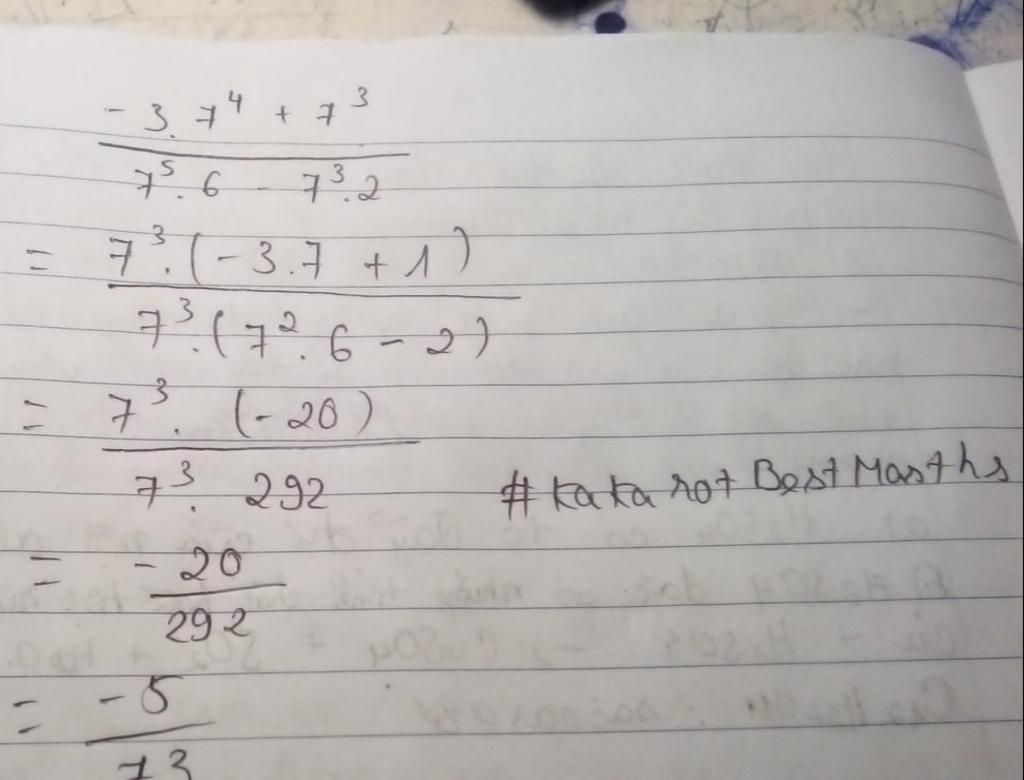 - 3. 7⁴ + 7³
7⁵. 6 - 7³. 2
= 7³. (- 3. 7 + 1)
7³. (7². 6 - 2)
= 7³. (- 20)
7³. 292
# KaKa rot Best Masths
= - 20
292
= - 5
73